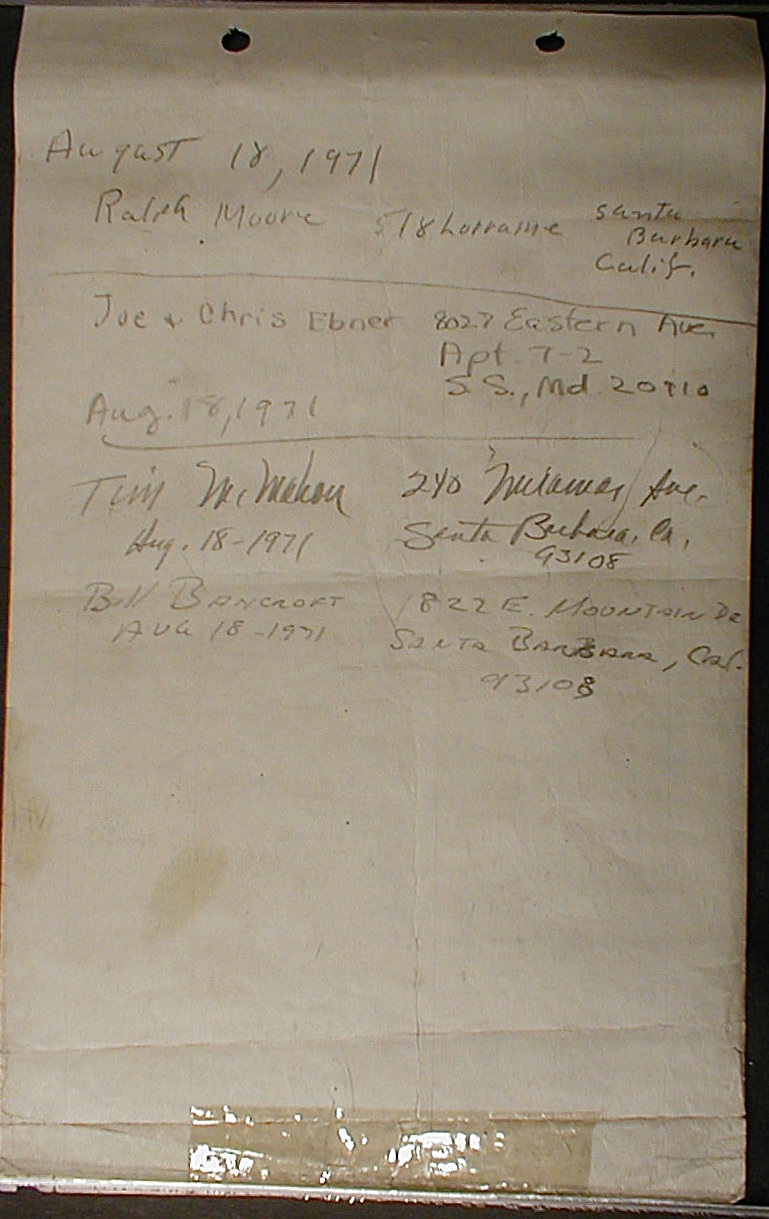 August 18, 1971
Ralph Moore 518 Lorraine Santa
Barbara
Calif.
Joe & Chris Ebner 8027 Eastern Ave.
Apt. T-2
S.S., Md. 20910
Aug. 18, 1971
Tim McMahon 240 Miramar Ave.
Aug. 18-1971 Santa Barbara, Ca.
93108
Bill BANCROFT 1822 E. MOUNTAIN DR
AUG 18-1971 SANTA BARBARA, CAL.
93108